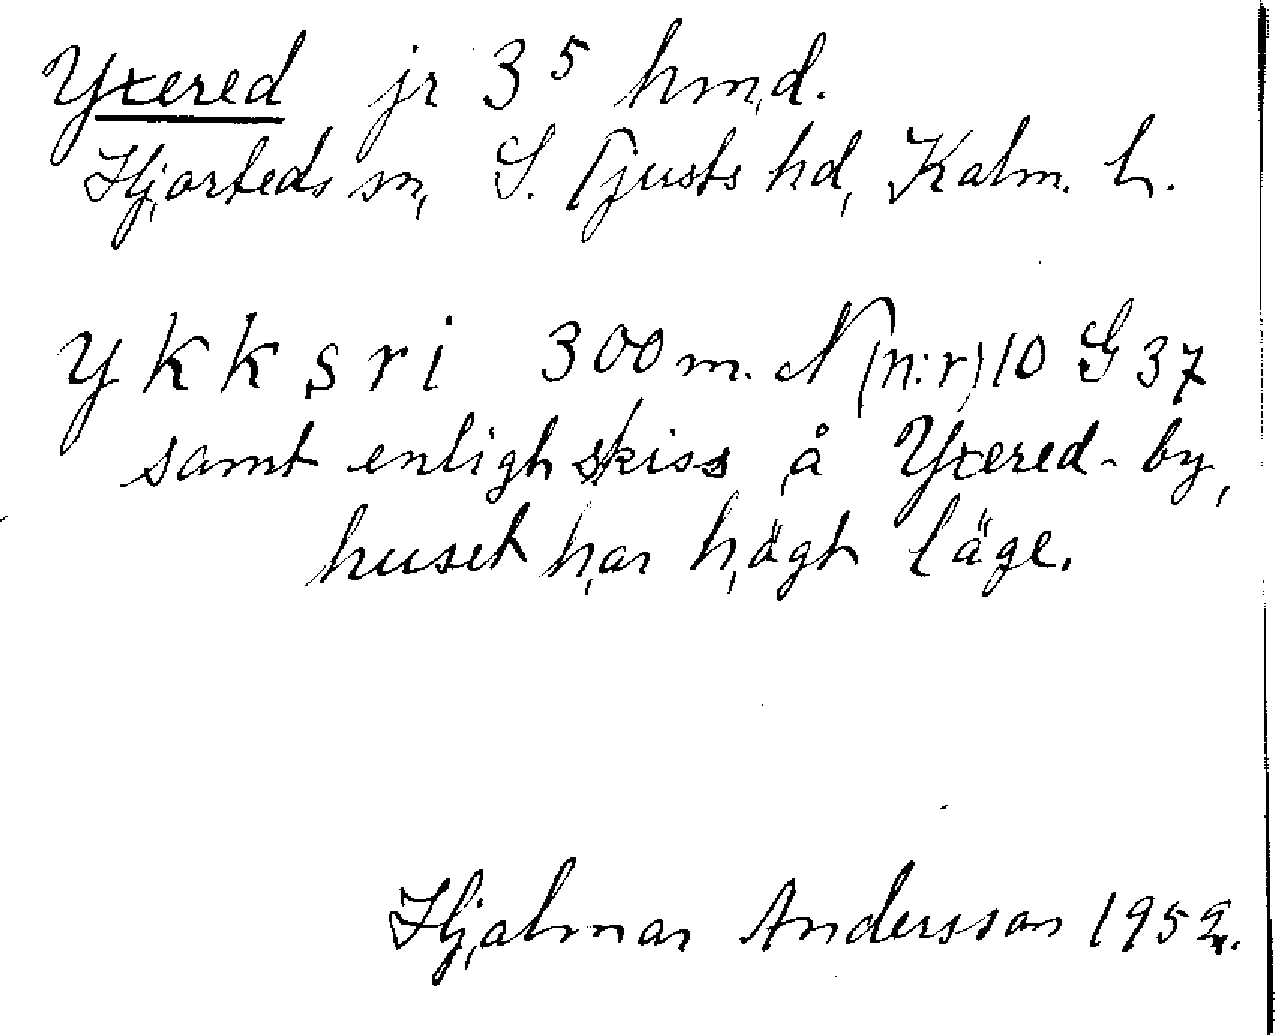 Yxered jr 3 5 hmd.
Hjorteds sn, S. Tjusts hd, Kalm. L.
ykksri 300 m. N (n:r) 10 G 37
samt enligt skiss å Yxered-by,
huset har högt läge.
Hjalmar Andersson 1952.